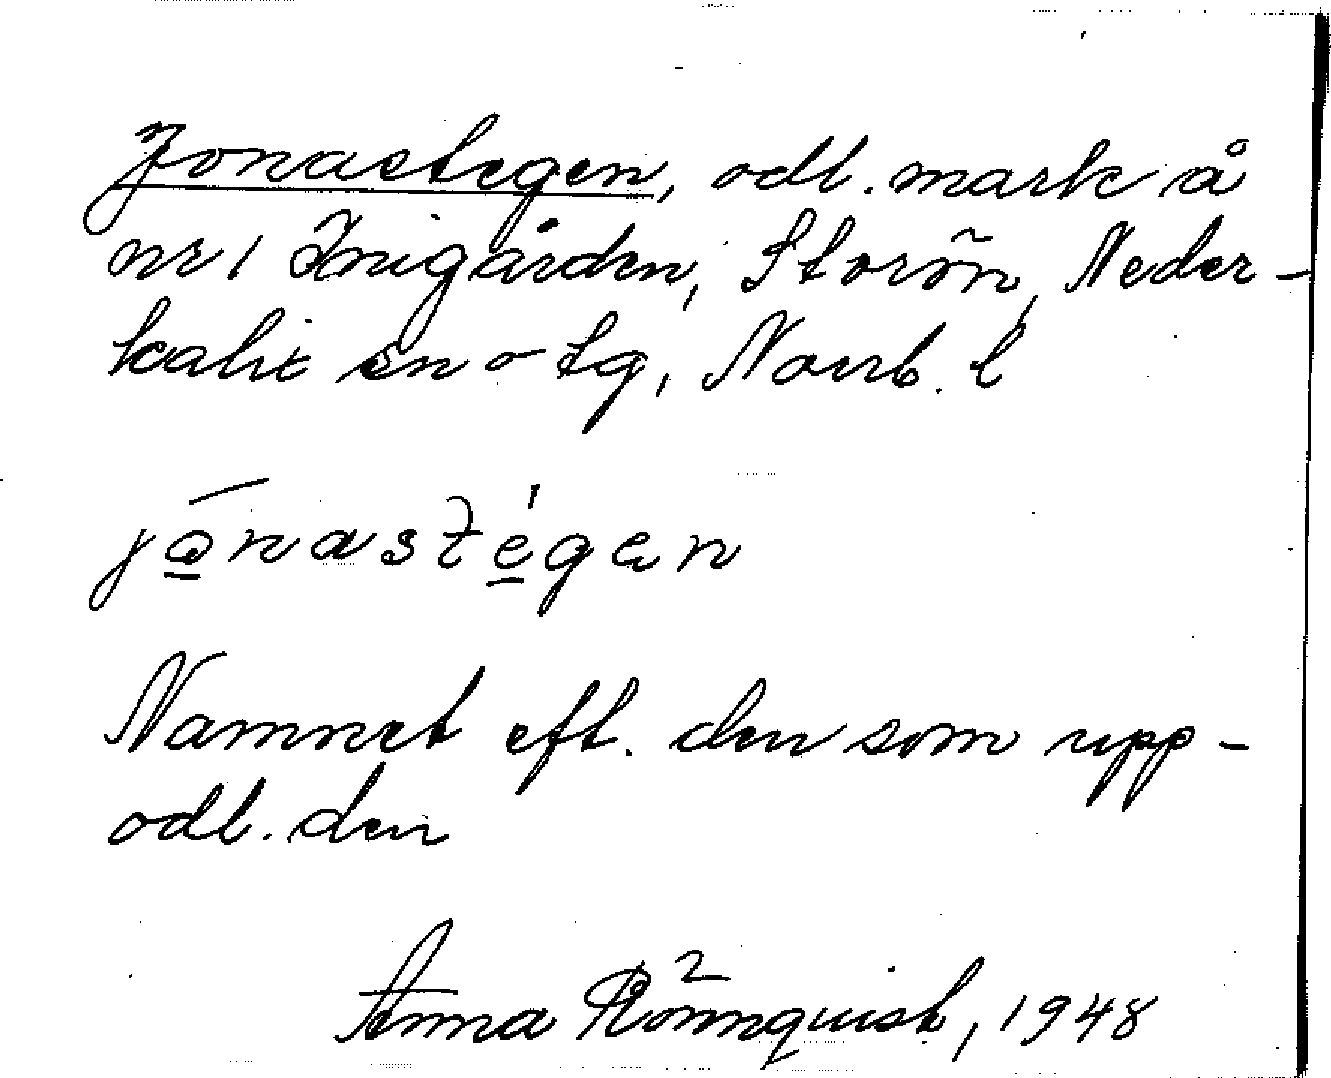 Jonastegen, odl. mark å
nr 1 Inigården, Storön, Neder-
kalix sn o tg, Norrb. l
jo̱nasté̱gen
Namnet eft. den som upp-
odl. den
Anna Rönnquist, 1948